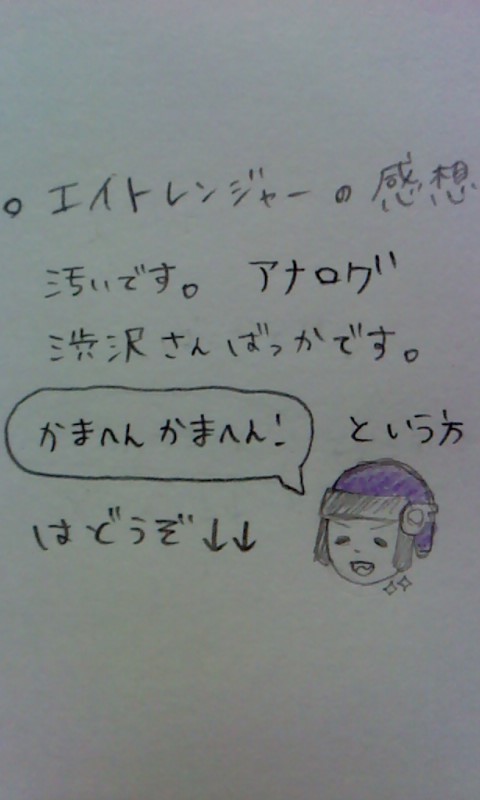 。エイトレンジャーの感想
汚いです。 アナログ
渋沢さんばっかです。
かまへんかまへん! という方
はどうぞ↓↓